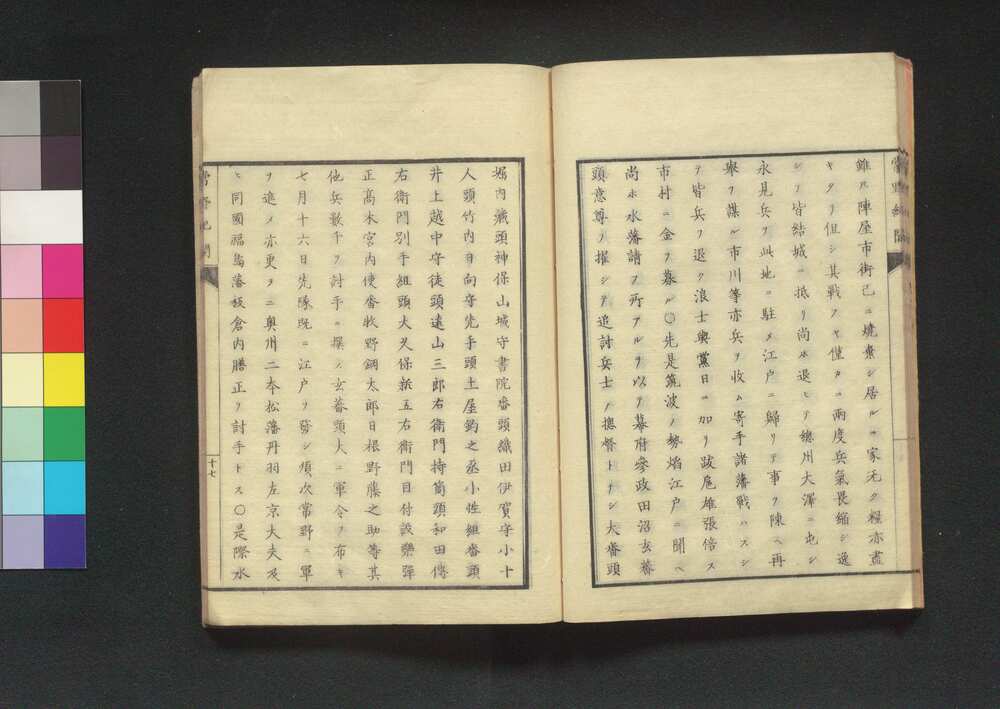 雖ヒ陣屋市街已ニ燒燼シ居ルニ家无ク糧亦盡
キタリ但シ其戰フヤ僅カニ兩度兵氣畏縮シ逸
シテ皆結城ニ抵リ尚ホ退ヒテ總州大澤ニ屯シ
永見兵ヲ此地ニ駐メ江戸ニ歸リテ事ヲ陳ヘ再
擧ヲ謀ル市川等亦兵ヲ收ム寄手諸藩戰ハスシ
テ皆兵ヲ退ク浪士輿黨日ニ加リ跋扈雄張倍ス
市村ニ金ヲ募ル〇先是筑波ノ勢焰江戸ニ聞ヘ
尚ホ水藩請フ所アルヲ以テ幕府參政田沼玄蕃
頭意尊ヲ擢シテ追討兵士ノ摠督トナシ大番頭
堀内藏頭神保山城守書院番頭織田伊賀守小十
人頭竹内日向守先手頭土屋鉤之丞小性組番頭
井上越中守徒頭遠山三郎右衛門持筒頭和田傳
右衛門別手組頭大久保新五右衛門目付設樂彈
正高木宮内使番牧野鋼太郎日根野藤之助等其
他兵數千ヲ討手ニ撰ヒ玄蕃頭大ニ軍令ヲ布キ
七月十六日先隊既ニ江戸ヲ發シ順次常野ニ軍
ヲ進メ亦更ラニ奥州二本松藩丹羽左京大夫及
ヒ同國福島藩板倉内膳正ヲ討手トス〇是際水
十七